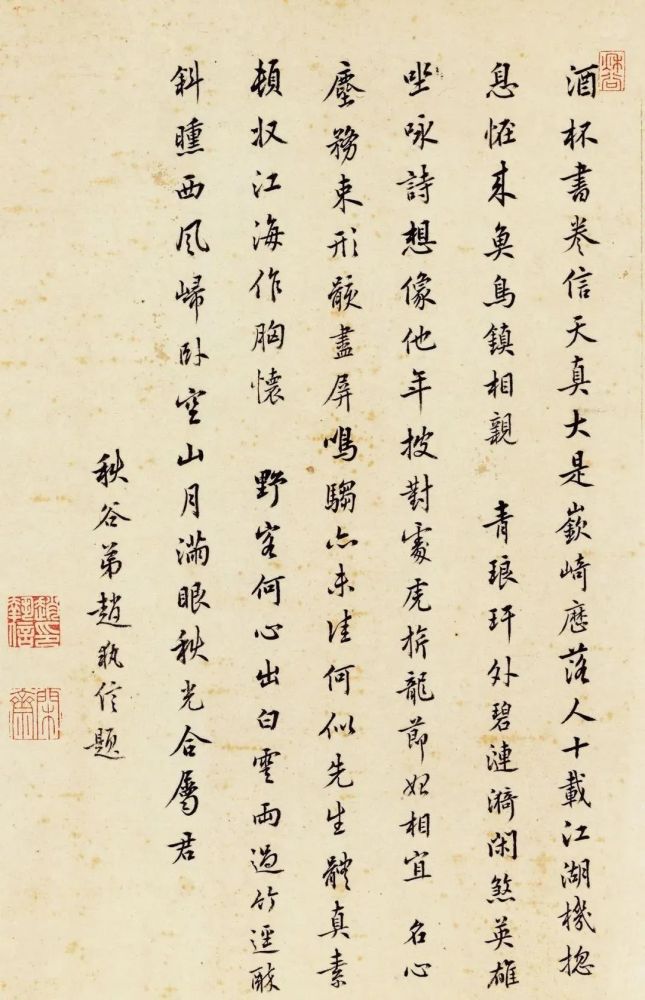 秋谷
酒杯書卷信天真大是嶔崎歷落人十載江湖機揔
息恠来魚鳥鎮相親 青琅玕外碧漣漪閑煞英雄
坐咏詩想像他年披對處虎旂龍節相宜 名心
塵務束形骸盡屏鳴騶亦未佳何似先生體真素
頓收江海作胸懷 野客何心出白雲雨過竹逕醉
斜曛西風歸卧空山月滿眼秋光合屬君
秋谷弟趙執信題